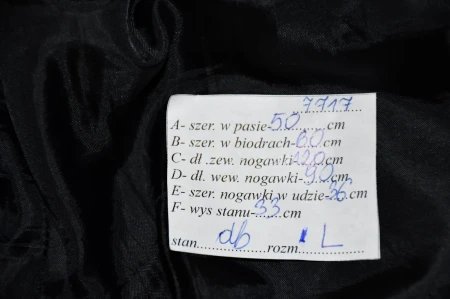 7717
A- szer. w pasie-50.........cm
B- szer. w biodrach-60.cm
C- dł .zew. nogawki-120.cm
D- dł. wew. nogawki-90.cm
E- szer. nogawki w udzie-36cm
F- wys stanu-33.cm
stan......db......rozm...L......